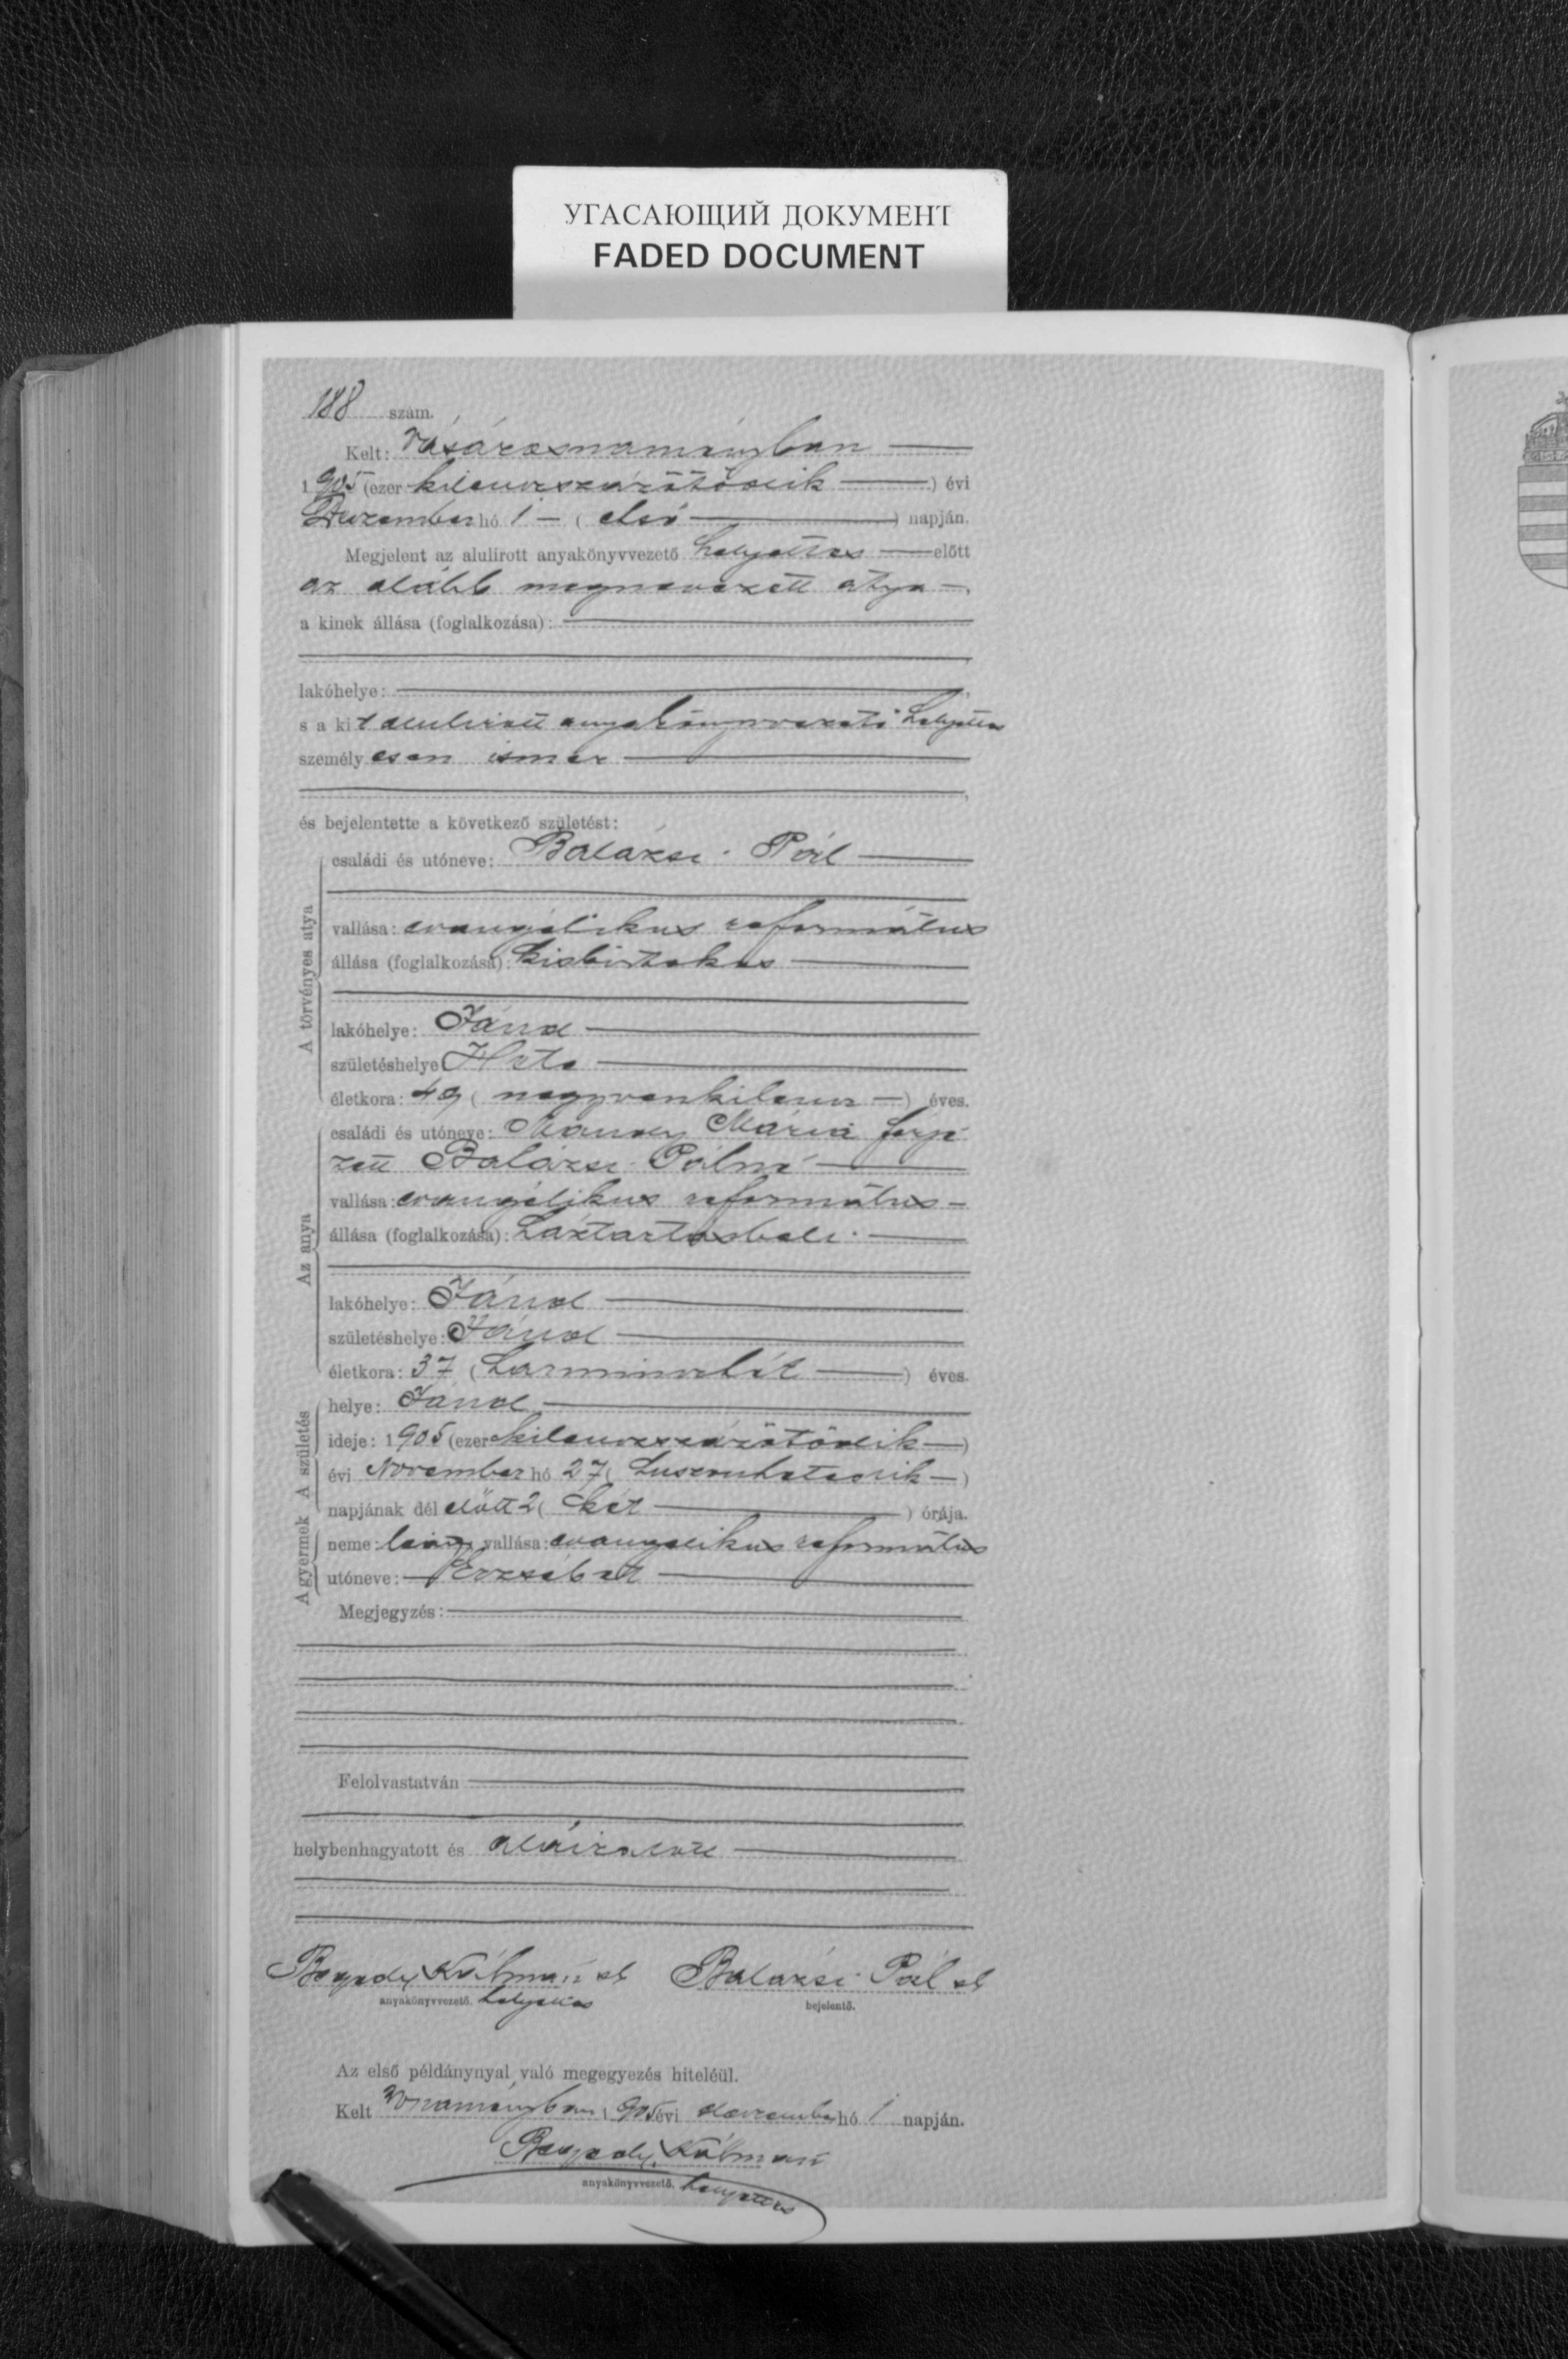 УГАСАЮЩИЙ ДОКУМЕНТ
FADED DOCUMENT
188 szám.
Kelt: Vásárosnaményban
1905 (ezer kilenczszázötödik) évi
Deczember hó 1 (első) napján.
Megjelent az alulirott anyakönyvvezető helyettes előtt
az alább megnevezett atya,
a kinek állása (foglalkozása):
lakóhelye:
s a kit alulirott anyakönyvvezető helyettes
személyesen ismer
és bejelentette a következő születést:
A törvényes atya
családi és utóneve: Balázsi Pál
vallása: evangélikus református
állása (foglalkozása): kisbirtokos
lakóhelye: Jánd
születéshelye:
életkora: 49 (negyvenkilencz) éves.
Az anya
családi és utóneve: Mária férje
zett Balázsi Pálné
vallása: evangélikus református
állása (foglalkozása): háztartásbeli
lakóhelye: Jánd
születéshelye: Jánd
életkora: 37 (harminchét) éves.
A születés
helye: Jánd
ideje: 1905 (ezer kilenczszázötödik)
évi November hó 27 (huszonhetedik)
napjának dél előtt 2 (két) órája.
A gyermek
neme: leány, vallása: evangelikus református
utóneve: Erzsébet
Megjegyzés:
Felolvastatván
helybenhagyatott és aláiratott
Kálmán sk Balázsi Pál sk
anyakönyvvezető. helyettes bejelentő.
Az első példánynyal való megegyezés hiteléül.
Kelt Vnaményban, 1905 évi deczember hó 1 napján.
Kálmán
anyakönyvvezető. helyettes